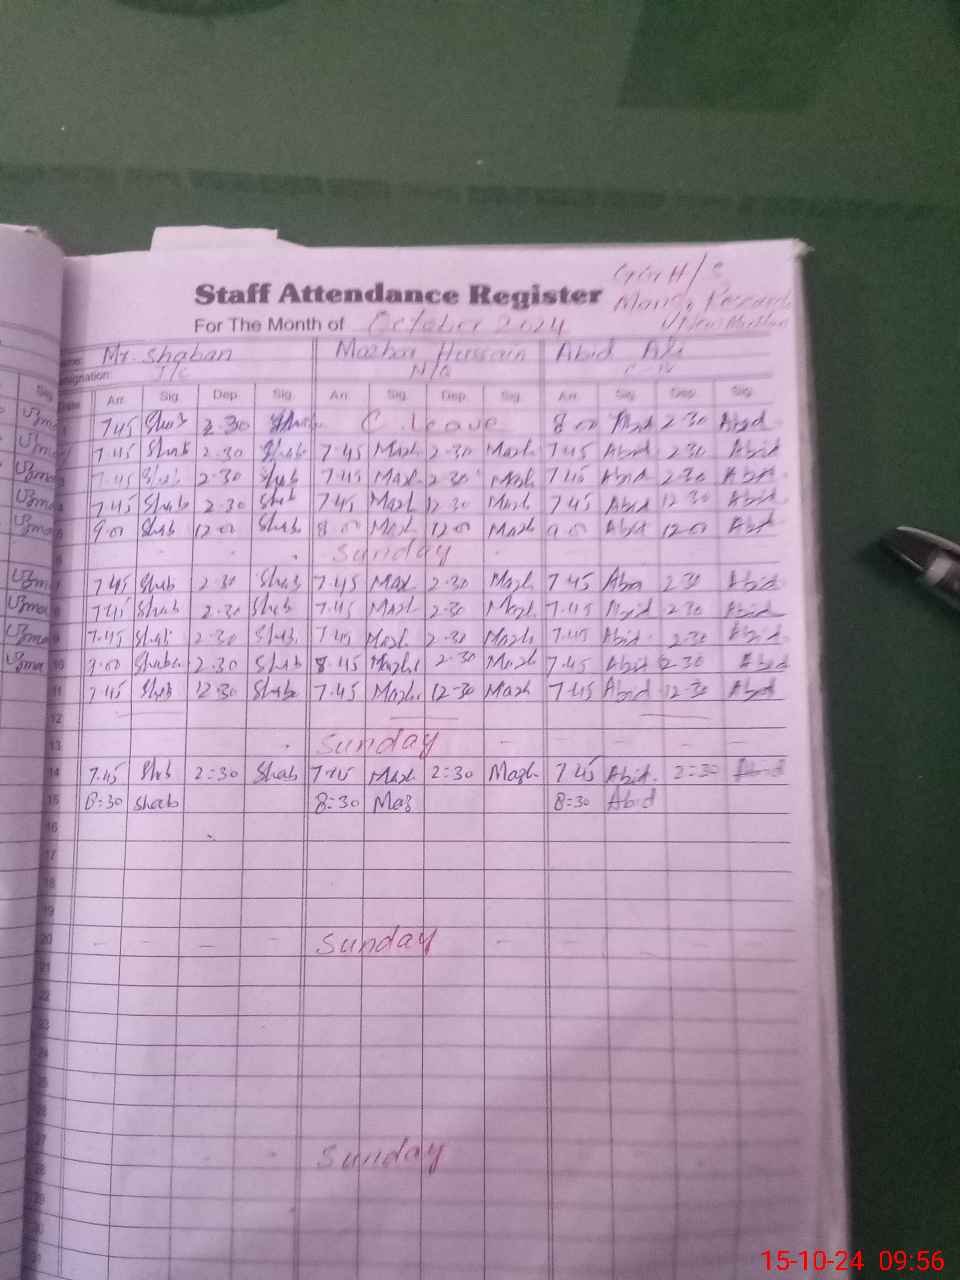 Staff Attendance Register
For The Month of October 2024
Mr. Shaban Mazhar Hussain Abid Ali
Designation: J/C N/Q C-IV
Arr. Sig. Dep. Sig. Arr. Sig. Dep. Sig. Arr. Sig. Dep. Sig.
7.45 Shab 2.30 C. leave 8.00 Abid 2.30 Abid
7.45 Shab 2.30 Shab 7.45 Mazh 2.30 Mazh 7.45 Abid 2.30 Abid
7.45 Shab 2.30 Shab 7.45 Mazh 2.30 Mazh 7.45 Abid 2.30 Abid
7.45 Shab 2.30 Shab 7.45 Mazh 12.30 Mazh 7.45 Abid 12.30 Abid
9.00 Shab 12.00 Shab 8.00 Mazh 12.00 Mazh 9.00 Abid 12.00 Abd
Sunday
7.45 Shab 2.30 Shab 7.45 Maz 2.30 Mazh 7.45 Abin 2.30 Abid
7.45 Shab 2.30 Shab 7.45 Mazh 2.30 Mazh 7.45 Abid 2.30 Abid
7.45 Shab 2.30 Shab 7.45 Mazh 2.30 Mazh 7.45 Abid 2.30 Abid
10 9.00 Shab 2.30 Shab 8.45 Mazh 2.30 Mazh 7.45 Abid 2.30 Abid
11 7.45 Shab 12.30 Shab 7.45 Mazh 12.30 Mazh 7.45 Abid 12.30 Abid
12
13 Sunday
14 7.45 Shab 2:30 Shab 7.45 Mazh 2:30 Mazh 7.45 Abid 2:30 Abid
15 8:30 Shab 8:30 Maz 8:30 Abid
16
17
18
19
20 Sunday
21
22
23
24
25
26
27 Sunday
28
29
15-10-24 09:56